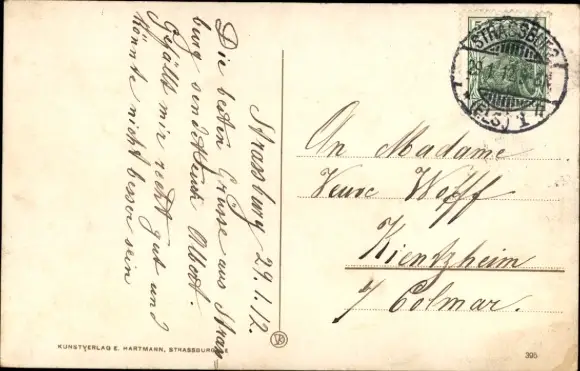 Strassburg 29.1.12.
Die besten Grüsse aus Strass
burg sendet Euch Albert.
Gefällt mir recht gut und
könnte nicht besser sein
5 5
STRASSBURG
(ELS) 1
An Madame
Veuve Wolff
Kientzheim
/ Colmar.
KUNSTVERLAG E. HARTMANN, STRASSBURG
395